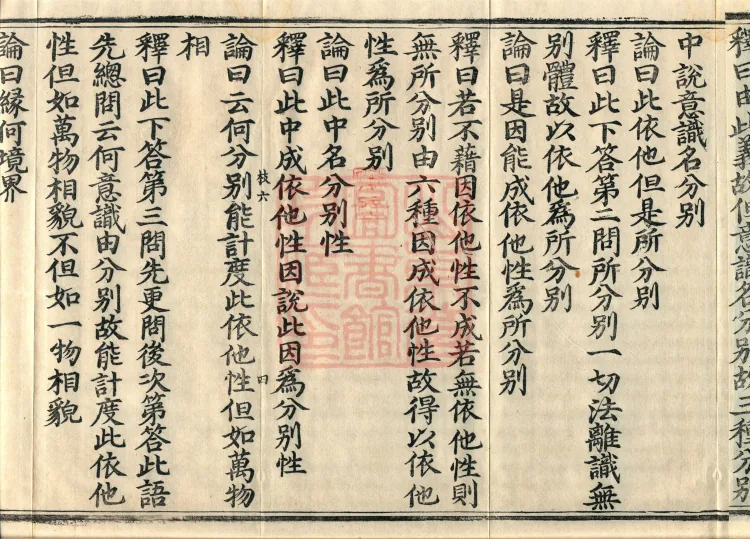 釋曰由此義故但意識名分別故三種分別
中說意識名分別
論曰此依他但是所分別
釋曰此下答第二問所分別一切法離識無
別體故以依他為所分別
論曰是因能成依他性為所分別
釋曰若不藉因依他性不成若無依他性則
無所分別由六種因成依他性故得以依他
性為所分別
論曰此中名分別性
釋曰此中成依他性因說此因為分別性
枝六
四
論曰云何分別能計度此依他性但如萬物
相
釋曰此下答第三問先更問後次第答此語
先總問云何意識由分別故能計度此依他
性但如萬物相貌不但如一物相貌
論曰緣何境界